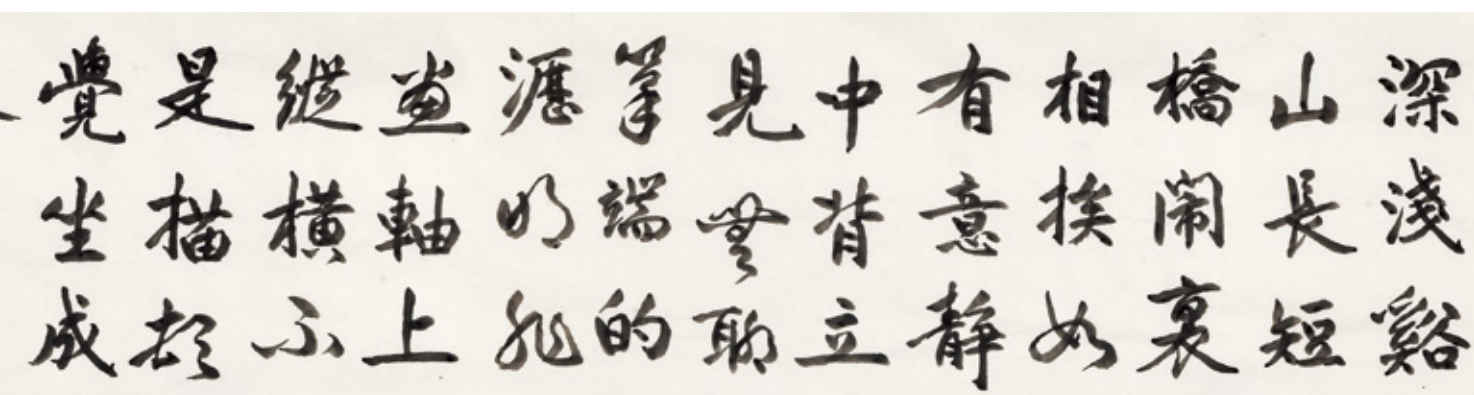 深淺谿
山長短
橋閙裏
相挨如
有意靜
中背立
見無聊
筆端的
瀝明非
畫軸上
縱橫不
是描頓
覺坐成